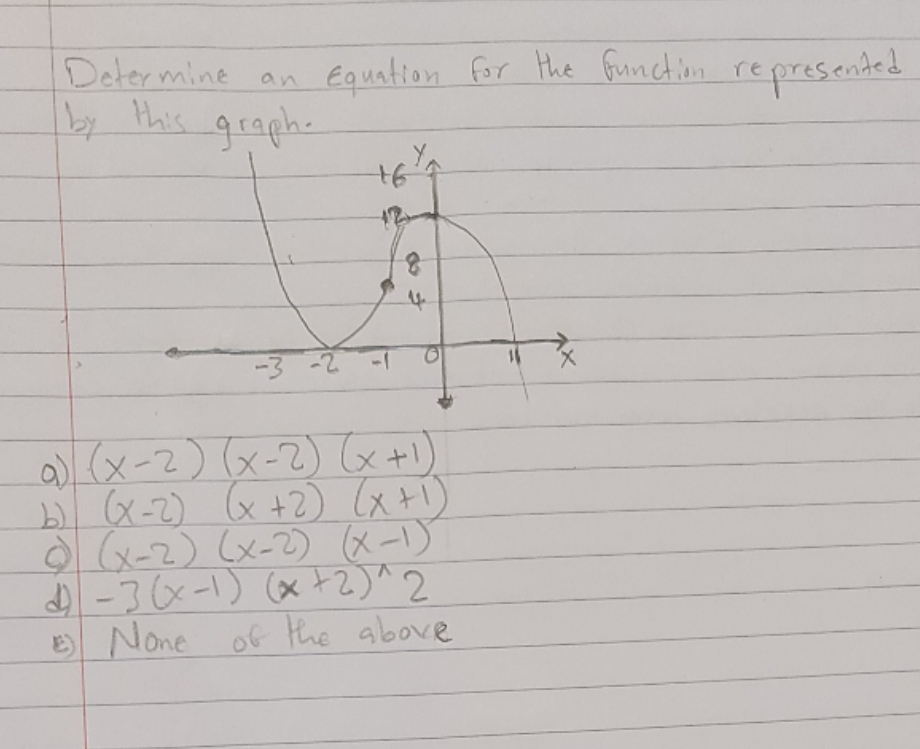 Determine an Equation for the function represented
by this graph.
y
16
12
8
4
-3 -2 -1 0 1 x
a) (x-2) (x-2) (x+1)
b) (x-2) (x+2) (x+1)
c) (x-2) (x-2) (x-1)
d) -3(x-1) (x+2)^2
E) None of the above